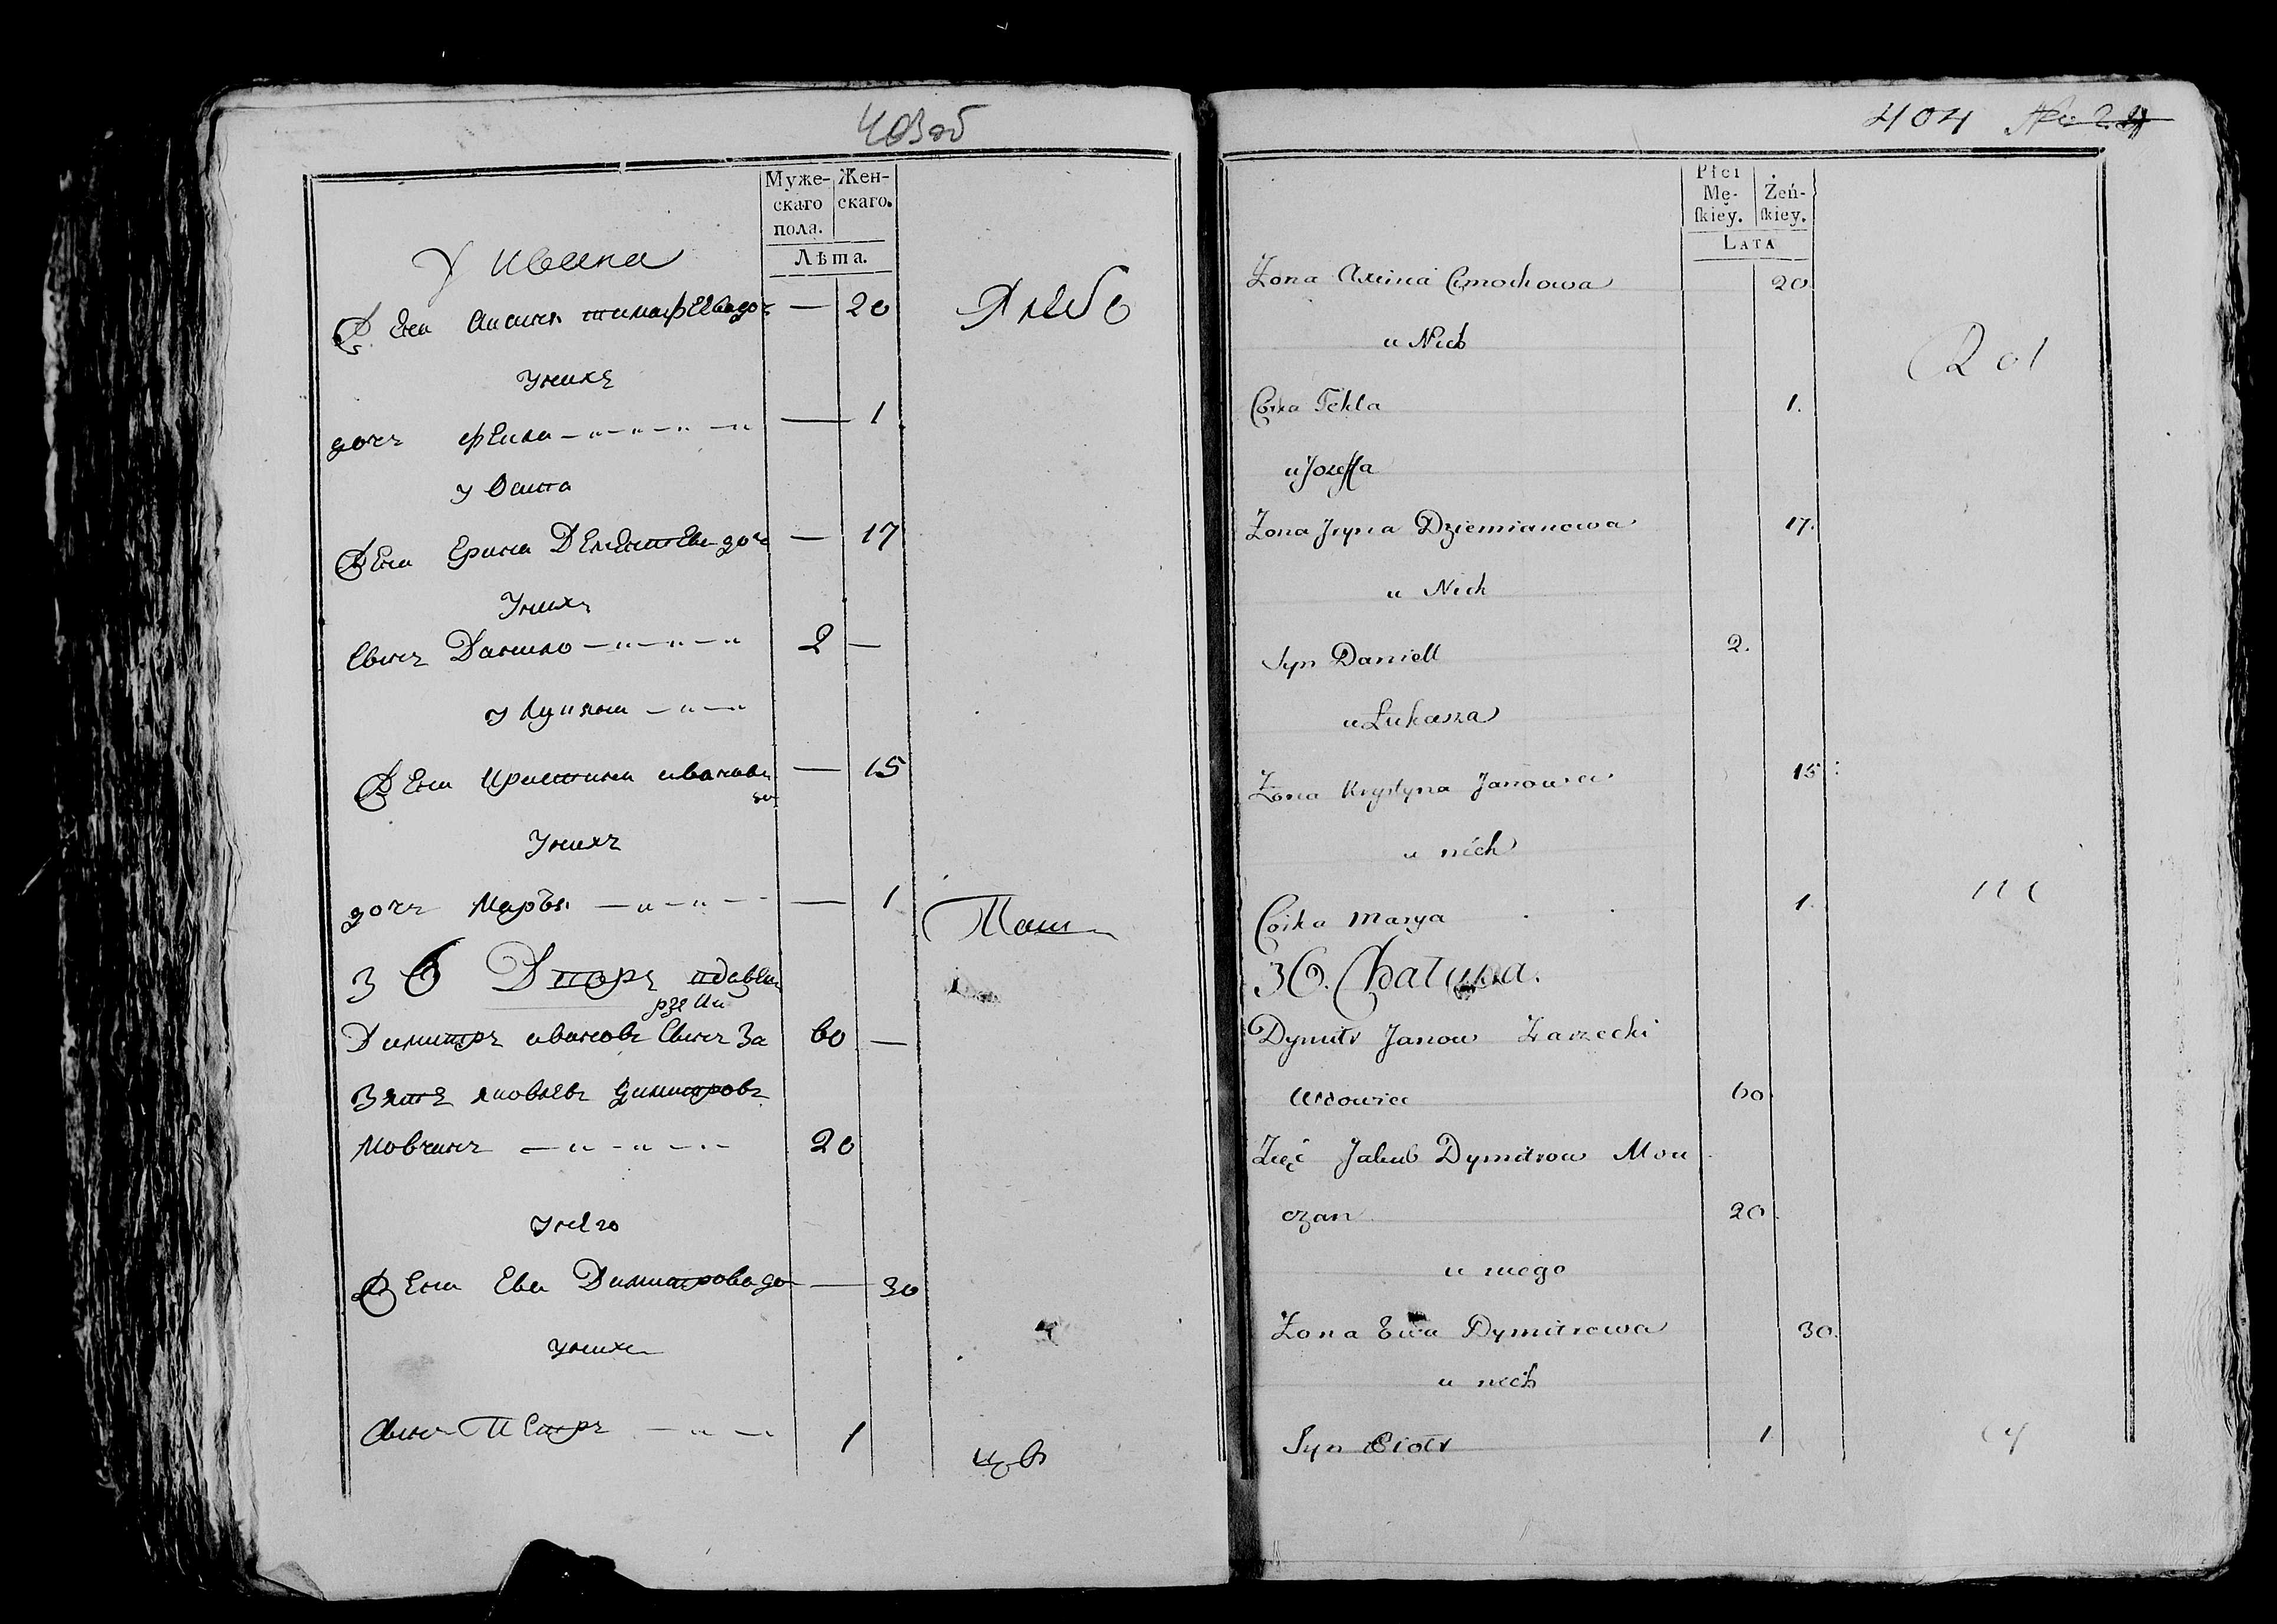 403 об
Муже-
скаго
пола.
Жен-
скаго.
Лѣта.
У Ивана
Жена Аксиня тимофеева доч — 20
Унихъ
дочъ Фекла — 1
у Осипа
Жена Ерина Дементева доч — 17
Унихъ
Сынъ Данило 2 —
у Лукяна
Жена Кристина иванова — 15
Унихъ
дочъ Маръя — 1
36 Дворъ
Димитръ ивановъ Сынъ За 60 —
рзецки
Зять яковлевъ Димитровъ
Мовчанъ 20
унего
Жена Ева Димитрова до — 30
унихъ
Сынъ Петръ 1
404
Płci
Mę-
ſkiey.
Żeń-
ſkiey.
Lata
Zona Axinia Cimochowa 20
u Nich
Corka Tekla 1.
u Jozeffa
Zona Iryna Dziemianowa 17.
u Nich
Syn Daniell 2.
u Lukasza
Zona Krystyna Janowa 15
u nich
Corka Marya 1
36. Chałupa.
Dymitr Janow Zarzecki
Wdowiec 60
Zięć Jakub Dymitrow Mou
czan 20
u niego
Zona Ewa Dymitrowa 30.
u nich
Syn Piotr 1